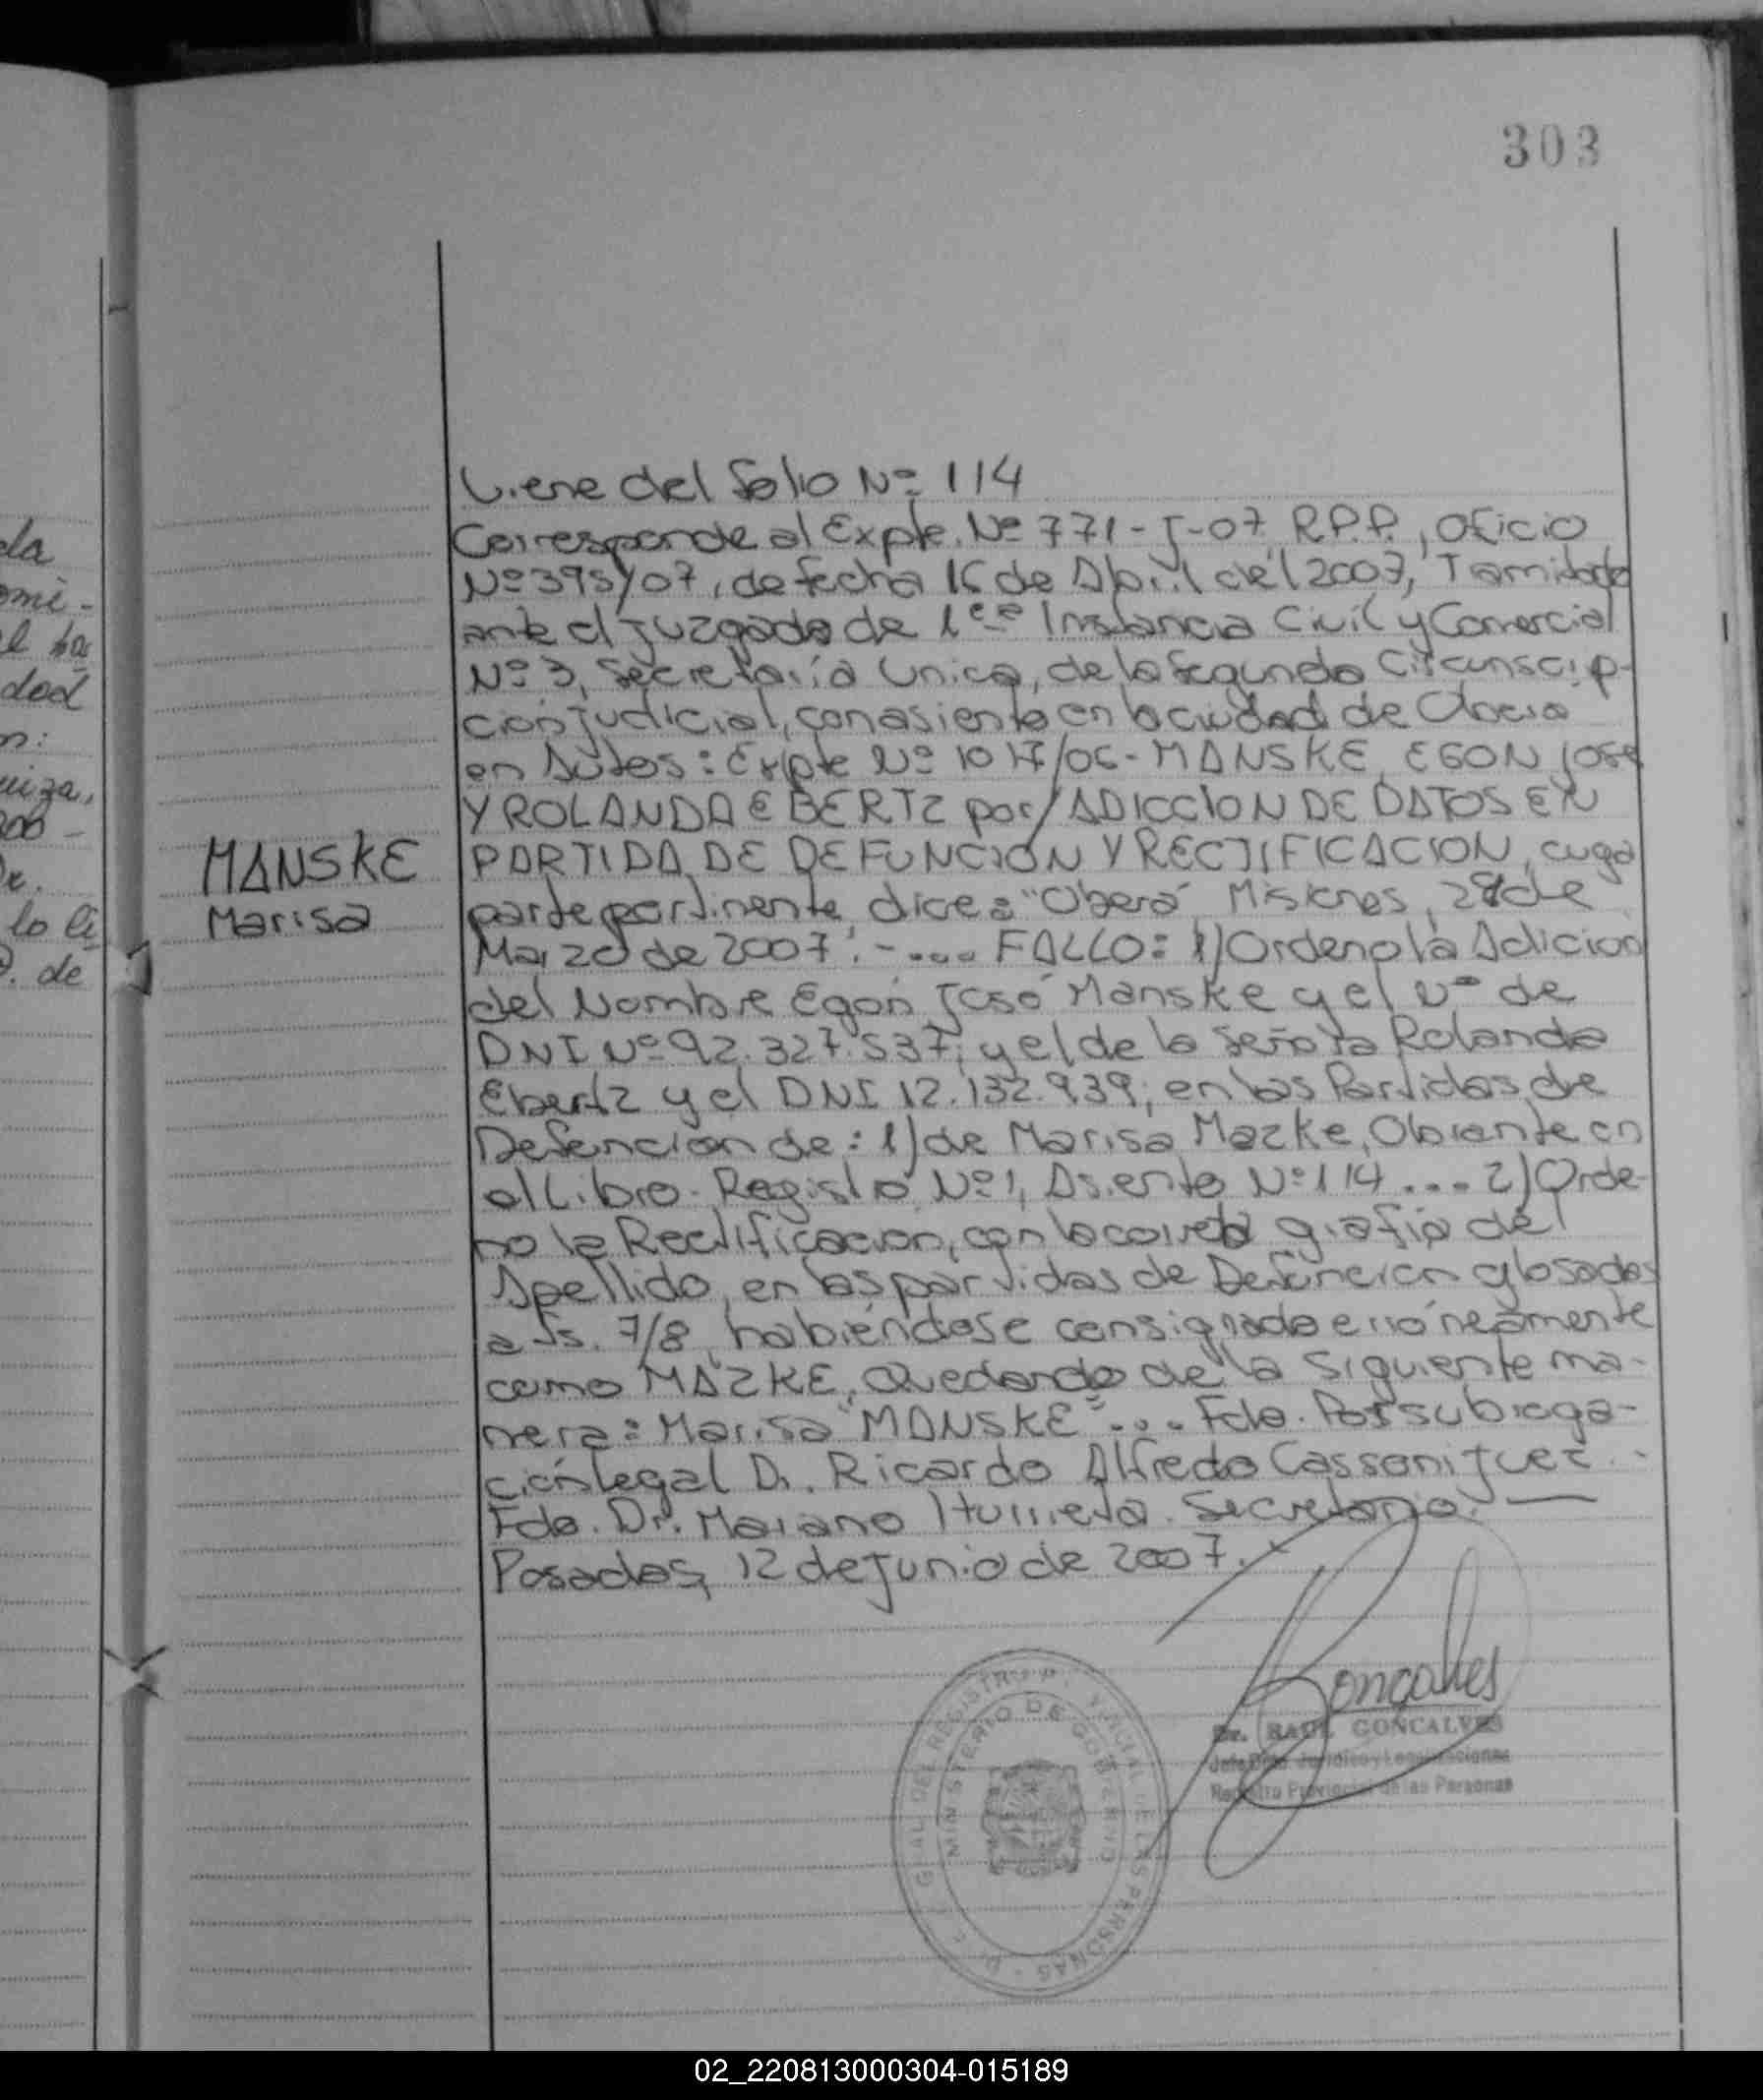 303
Viene del folio Nº 114
Corresponde al Expte. Nº 771-J-07 R.P.P., Oficio
Nº 395/07, de fecha 16 de Abril del 2007, Tramitado
ante el Juzgado de 1era Instancia Civil y Comercial
Nº 3, Secretaría Unica, de la Segunda Circunscrip-
ción Judicial, con asiento en la ciudad de Obera
en Autos: Expte Nº 1017/06 - MANSKE, EGON JOSE
Y ROLANDA EBERTZ por/ADICCION DE DATOS EN
PARTIDA DE DEFUNCION Y RECTIFICACION, cuya
MANSKE
Marisa
parte pertinente dice: "Oberá Misiones, 28 de
Marzo de 2007.-.... FALLO: 1) Ordeno la Adicion
del Nombre Egon José Manske y el Nº de
DNI Nº 92.327.537; y el de la Señora Rolanda
Ebertz y el DNI 12.132.939; en las Partidas de
Defuncion de: 1) de Marisa Mazke, Obrante en
el Libro-Registro Nº 1, Asiento Nº 114 ... 2) Orde-
no la Rectificacion, con la correcta grafia del
Apellido, en las partidas de Defuncion glosadas
a fs. 7/8, habiéndose consignado erróneamente
como MAZKE, Quedando de la siguiente ma-
nera: Marisa "MANSKE"... Fdo. Por subroga-
ción legal Dr. Ricardo Alfredo Cassoni Juez.-
Fdo. Dr. Mariano Iturrieta. Secretario. —
Posadas, 12 de Junio de 2007.-
Goncalves
Dr. RAUL GONCALVES
Jefe Dpto. Jurídico y Legalizaciones
Registro Provincial de las Personas
GRAL DEL REGISTRO PROVINCIAL DE LAS PERSONAS
MINISTERIO DE GOBIERNO
la
omi-
dad
n:
uiza,
lo li
de
02_220813000304-015189